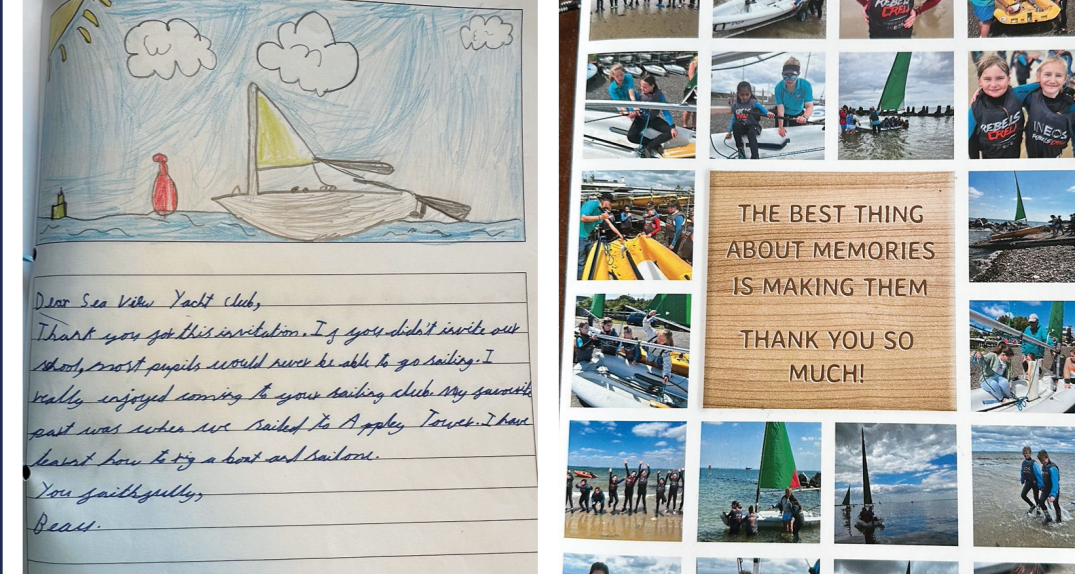 Dear Sea View Yacht club,
Thank you for this invitation. If you didn't invite our
school, most pupils would never be able to go sailing. I
really injoyed coming to your sailing club. My favourite
part was when we sailed to Appley Tower. I have
learnt how to rig a boat and sail one.
You faithfully,
Beau.
REBELS
CREW
REBELS
CREW
INEOS
REBELS CREW
THE BEST THING
ABOUT MEMORIES
IS MAKING THEM
THANK YOU SO
MUCH!